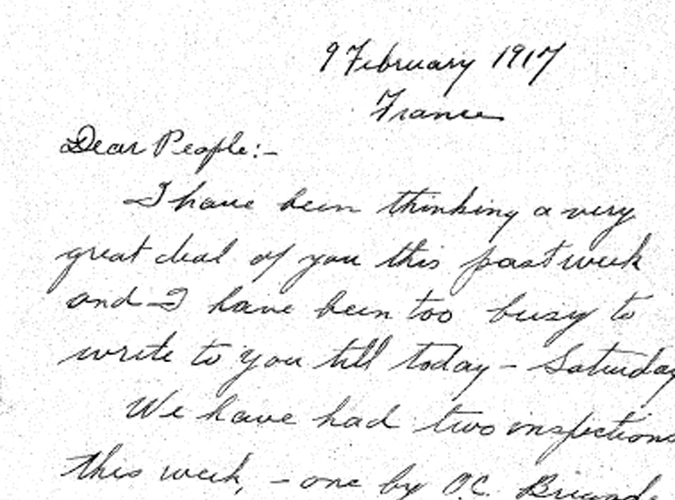 9 February 1917
France
Dear People:-
I have been thinking a very
great deal of you this past week
and I have been too busy to
write to you till today - Saturday
We have had two inspections
this week, - one by O.C.